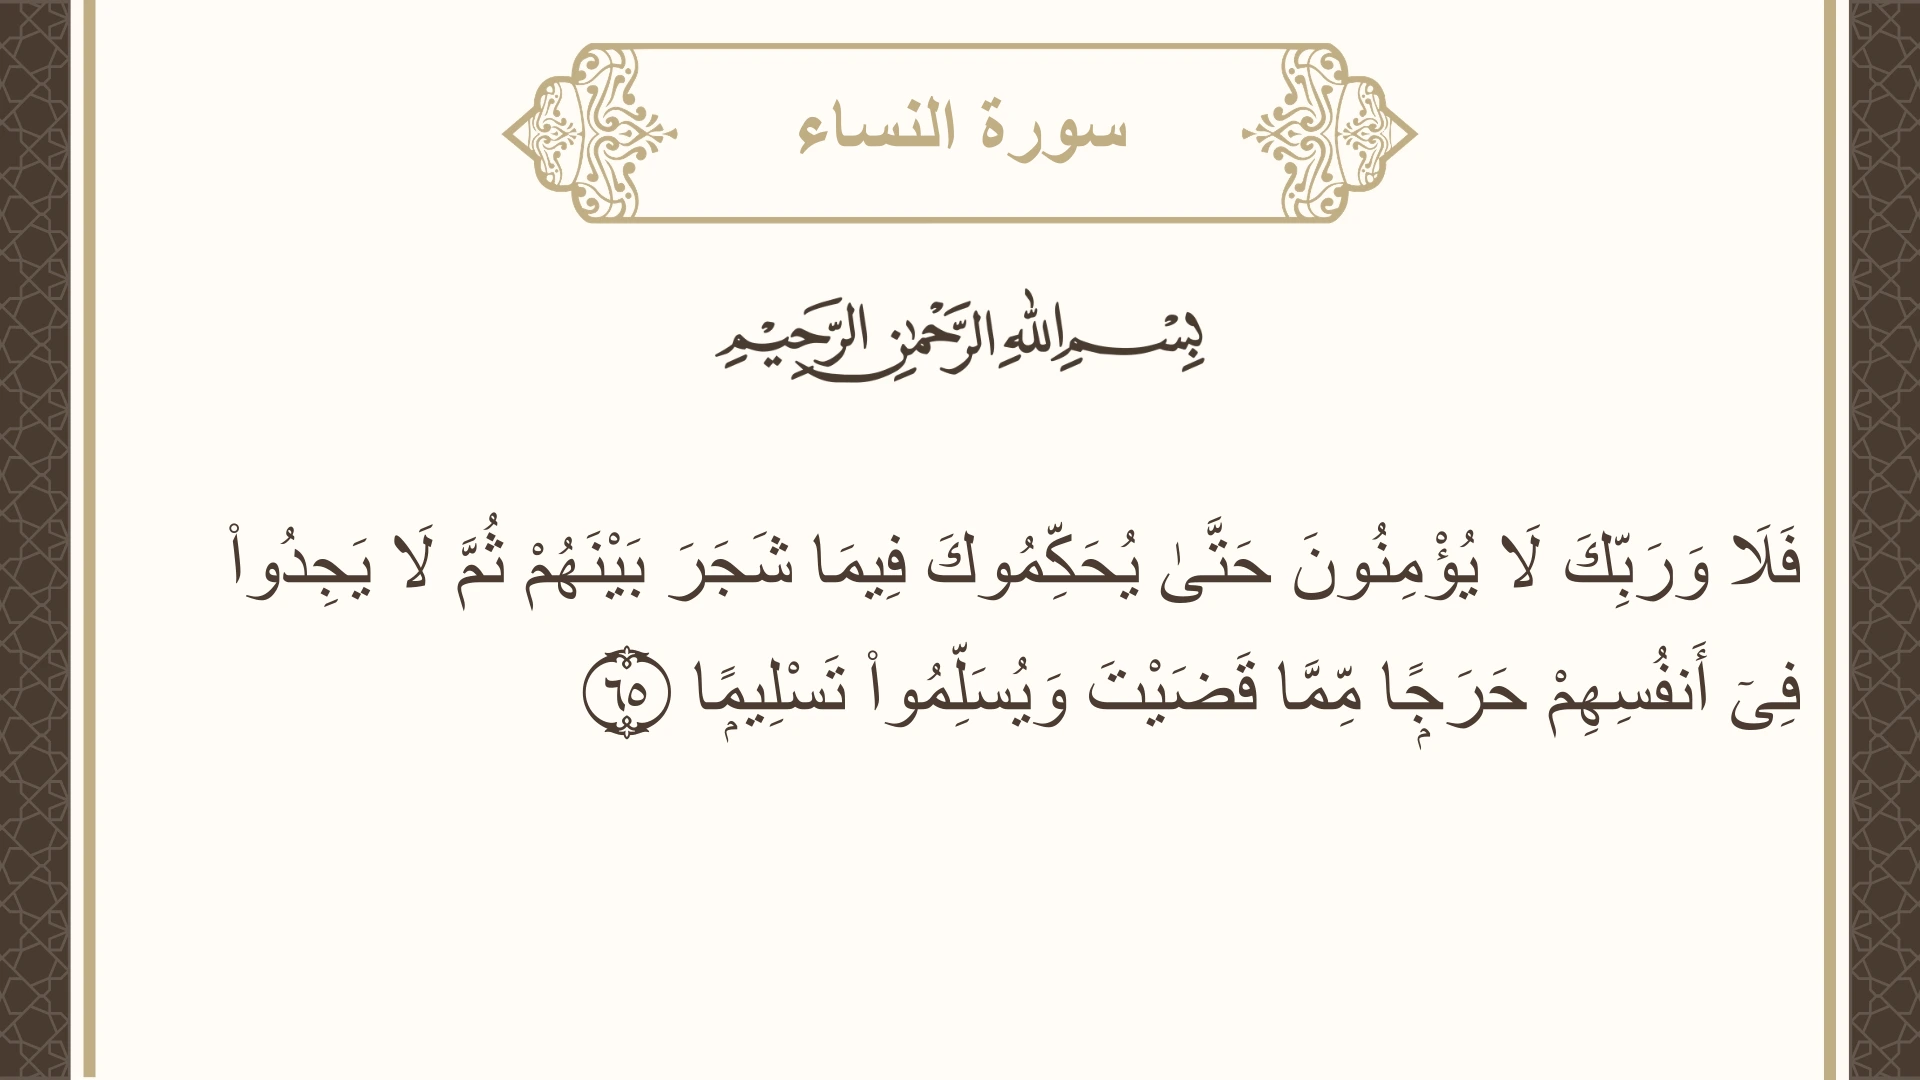 سورة النساء
بِسْمِ اللهِ الرَّحْمٰنِ الرَّحِيْمِ
فَلَا وَرَبِّكَ لَا يُؤْمِنُونَ حَتَّىٰ يُحَكِّمُوكَ فِيمَا شَجَرَ بَيْنَهُمْ ثُمَّ لَا يَجِدُوا۟
فِىٓ أَنفُسِهِمْ حَرَجًۭا مِّمَّا قَضَيْتَ وَيُسَلِّمُوا۟ تَسْلِيمًۭا ٦٥